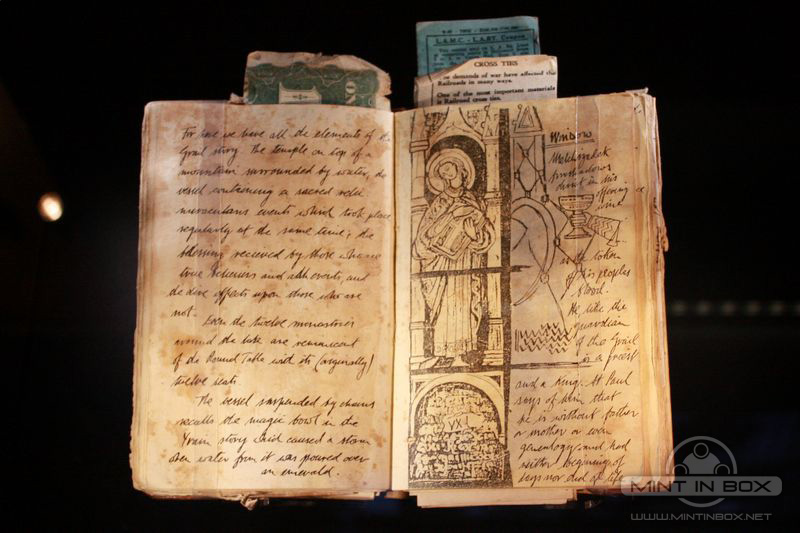 For here we have all the elements of the
Grail story. The temple on top of a
mountain surrounded by water, the
vessel containing a sacred relic
miraculous events which took place
regularly at the same time; the
blessing recieved by those who are
true believers and all events, and
the dire effects upon those who are
not.
Even the twelve monasteries
around the lake are reminiscent
of the Round Table with its (originally)
twelve seats.
The vessel suspended by chains
recalls the magic bowl in the
story said caused a storm
when water from it was poured over
an emerald.
L.A.M.C. - L.A.RY. Coupon
CROSS TIES
The demands of war have affected the
Railroads in many ways.
One of the most important materials
is Railroad cross ties.
Window
Melchizedek
foreshadows
Christ in his
offering of
wine
as the token
of his peoples
blood.
He like the
guardian
of the Grail
is a priest
and a King. St Paul
says of him that
he is without father
or mother or even
genealogy and had
neither beginning of
days nor end of life
MINT IN BOX
WWW.MINTINBOX.NET